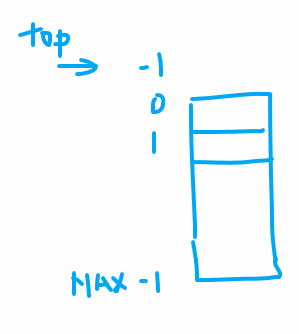 top
-1
0
1
MAX -1